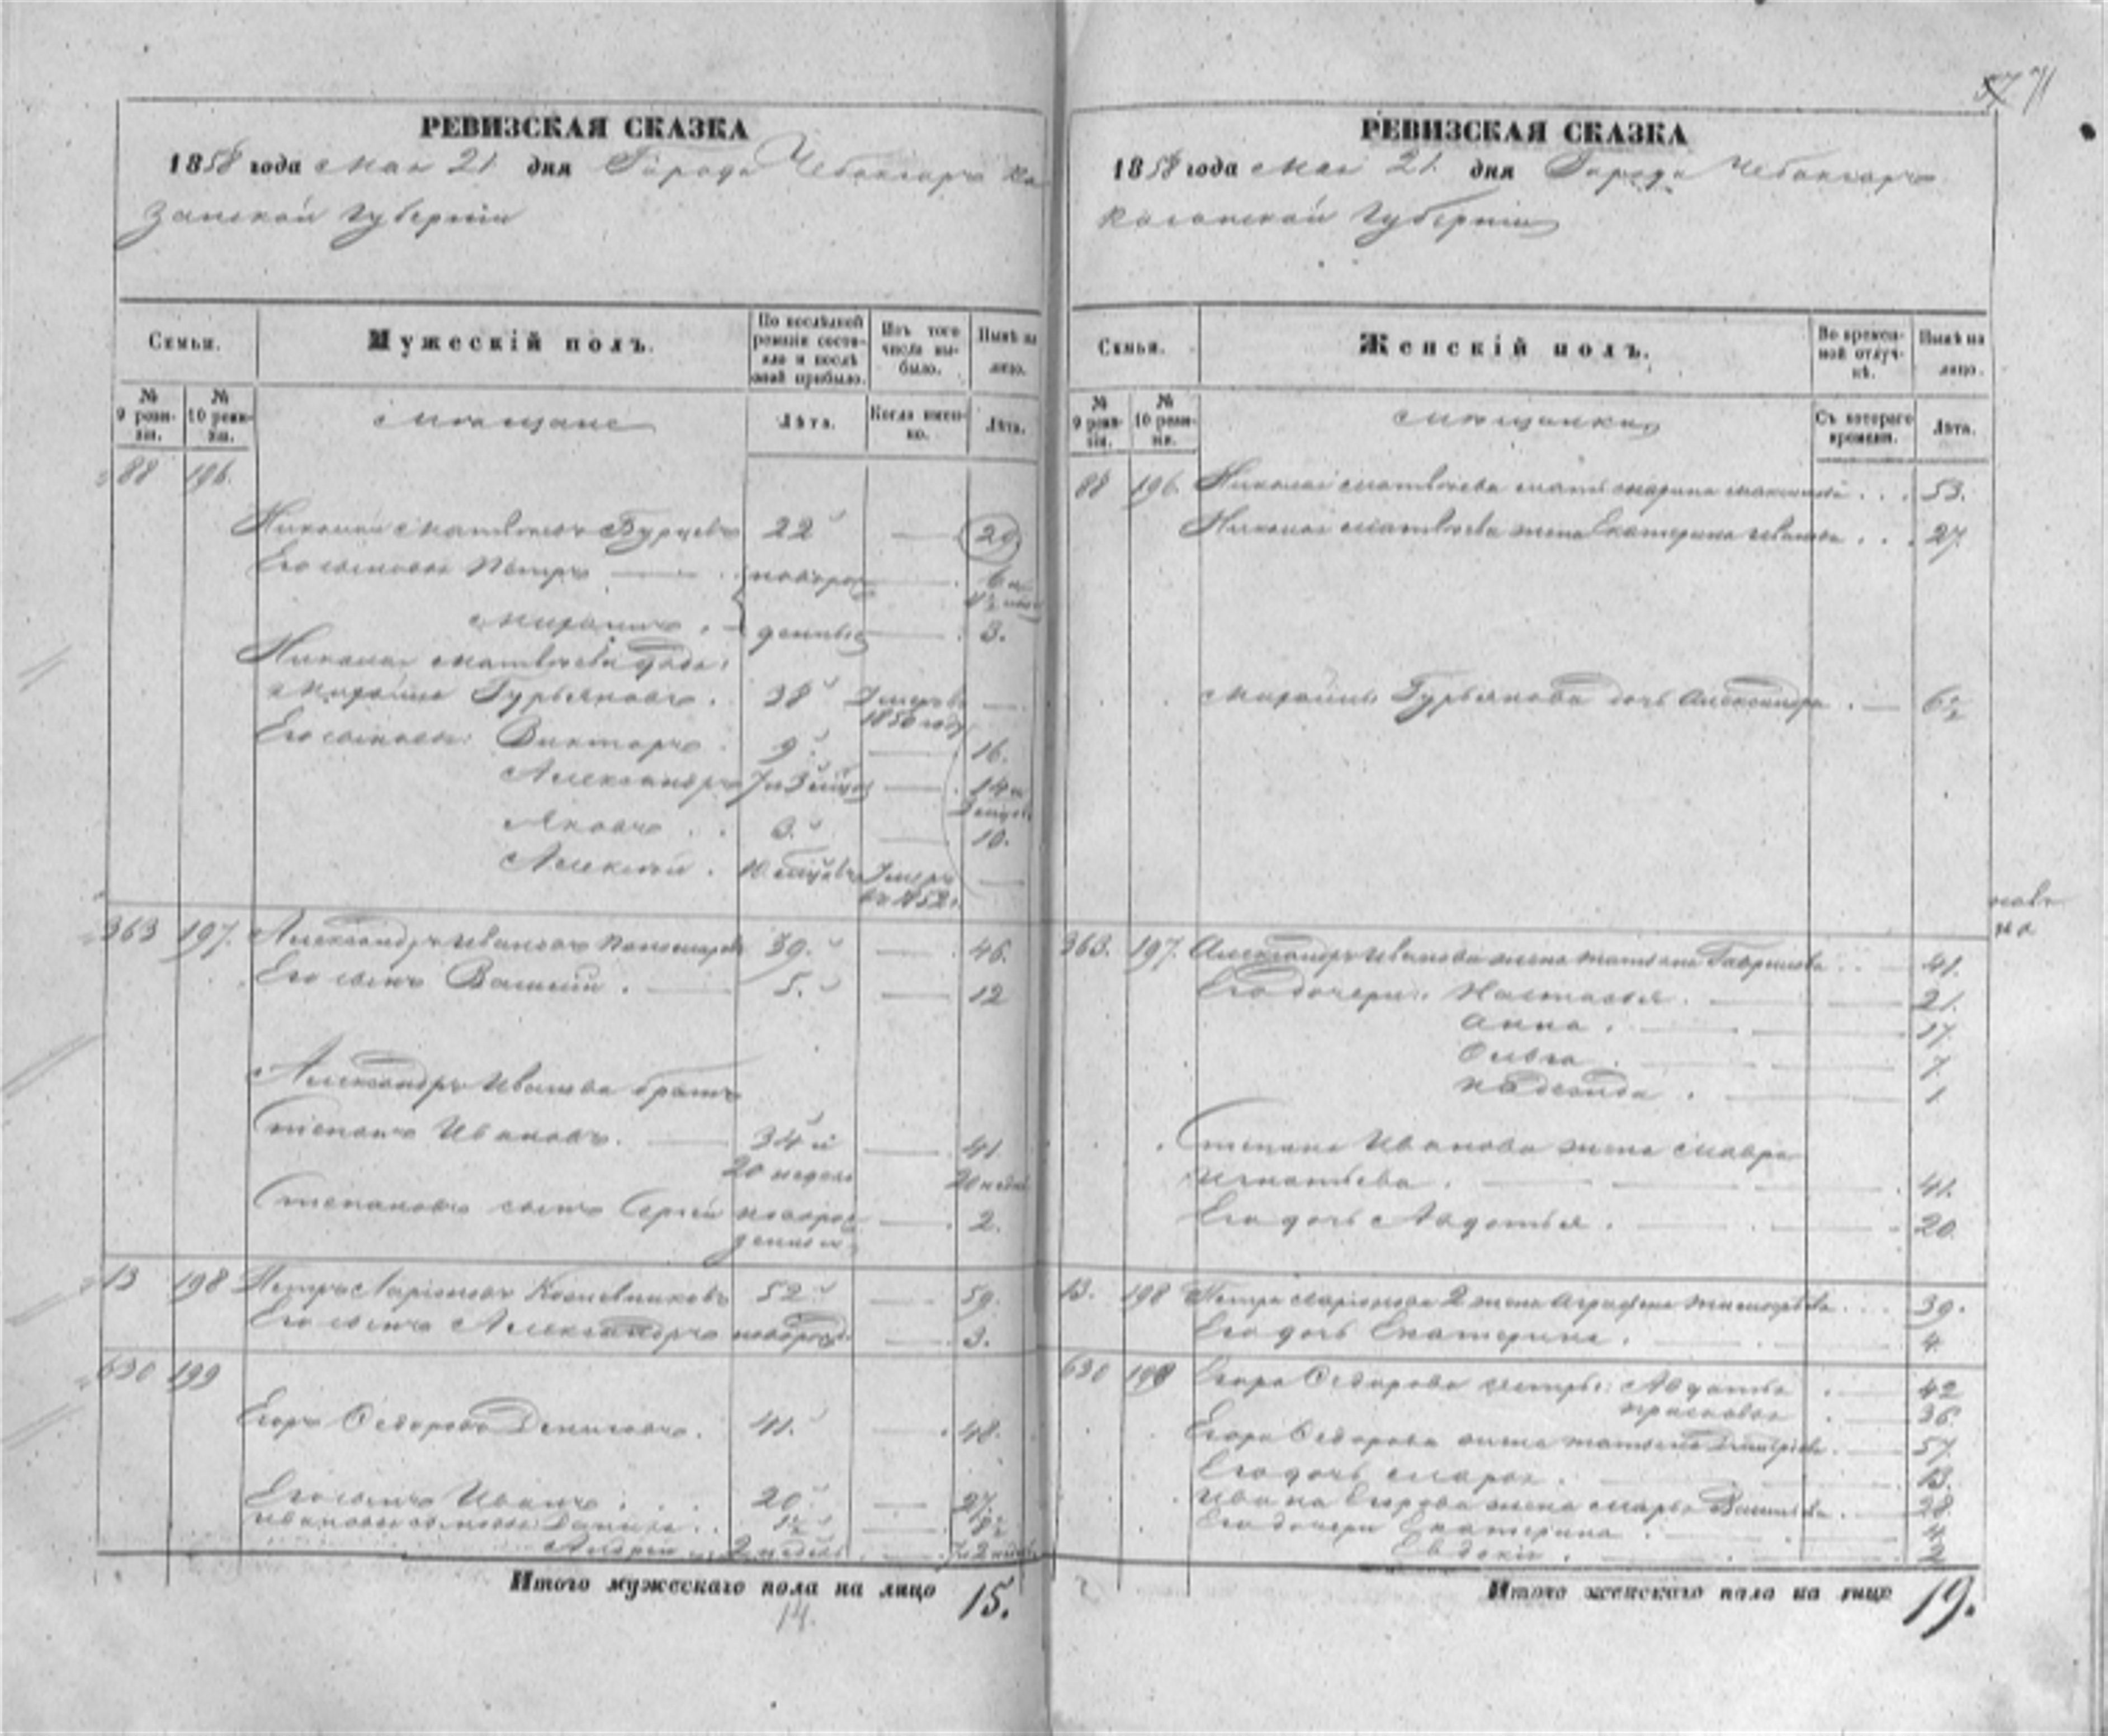 57 71
РЕВИЗСКАЯ СКАЗКА
1858 года Мая 21 дня Города Чебоксаръ Ка
занской Губерніи
Семьи.
Мужескій полъ.
По послѣдней ревизіи состояло и послѣ оной прибыло.
Изъ того числа выбыло.
Нынѣ на лицо.
№ 9 ревизіи.
№ 10 ревизіи.
Мѣщане
Лѣта.
Когда именно.
Лѣта.
88 196.
Николай Матвѣевъ Бурцевъ 22 — 29
Его сыновья Петръ — новорож — 6 и
Михаилъ денные — 3.
Николая Матвѣева дядя
Михайло Гурьяновъ. 38 Умеръ въ 1850 году —
Его сыновья: Викторъ 9. — 16.
Александръ 7 и 3 мѣся — 14 и 3 мѣся
Яковъ 3. — 10.
Алексѣй. 10 мѣсяцевъ Умеръ въ 1852. —
363 197. Александръ Ивановъ Пономаревъ 39. — 46.
Его сынъ Василій. — 5. — 12
Александра Иванова братъ
Степанъ Ивановъ. — 34 и 20 недель — 41 20 недел
Степановъ сынъ Сергѣй новорожденный — 2.
13 198 Петръ Ларіоновъ Кожевниковъ 52 — 59.
Его сынъ Александръ новорожд. — 3.
630 199
Егоръ Ѳедоровъ Денисовъ. 41. — 48.
Его сынъ Иванъ. 20 — 27.
Ивановы сыновья: Данила 1½ — 8½
Андрей 2 недель — 7 и 2 недел
Итого мужескаго пола на лицо 15.
14.
РЕВИЗСКАЯ СКАЗКА
1858 года Мая 21 дня Города Чебоксаръ
Казанской Губерніи
Семьи.
Женскій полъ.
Во временной отлучкѣ.
Нынѣ на лицо.
№ 9 ревизіи.
№ 10 ревизіи.
Мѣщанки
Съ котораго времени.
Лѣта.
88 196. Николая Матвѣева мать Марина Максимова 53.
Николая Матвѣева жена Екатерина Иванова 27.
Михайлы Гурьянова дочь Александра — 6½
363. 197. Александра Иванова жена Татьяна Гаврилова — 41.
Его дочери: Настасья. — 21.
Анна. — 17.
Ольга — 7.
Надежда. — 1
Степана Иванова жена Мавра
Игнатьева. — 41.
Его дочь Авдотья. — 20.
13. 198 Петра Ларіонова 2 жена Аграфена Тимофѣева 39.
Его дочь Екатерина. — 4.
630 199 Егора Ѳедорова сестры: Авдотья — 42
Прасковья — 36.
Егора Ѳедорова жена Татьяна Дмитріева. — 57.
Его дочь Марья. — 13.
Ивана Егорова жена Марья Васильева. — 28.
Его дочери Екатерина — 4
Евдокія. — 2
Итого женскаго пола на лицо 19.